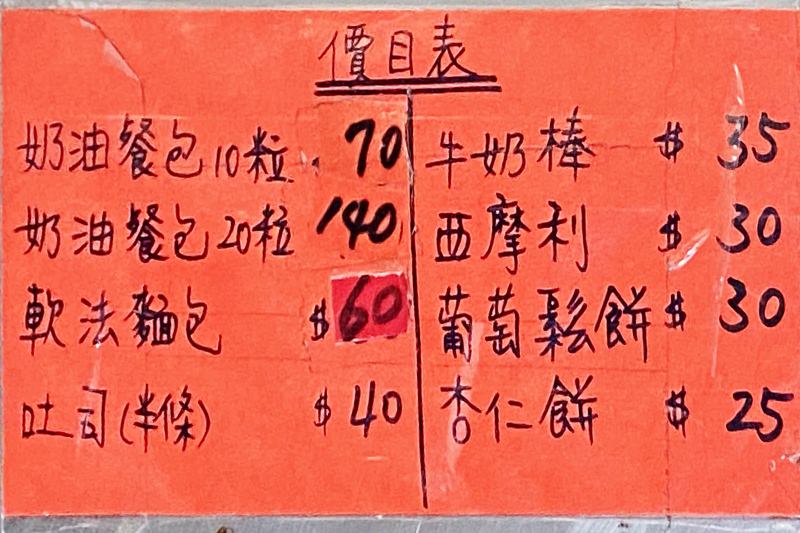 價目表
奶油餐包10粒 70
奶油餐包20粒 140
軟法麵包 $60
吐司(半條) $40
牛奶棒 $35
西摩利 $30
葡萄鬆餅 $30
杏仁餅 $25